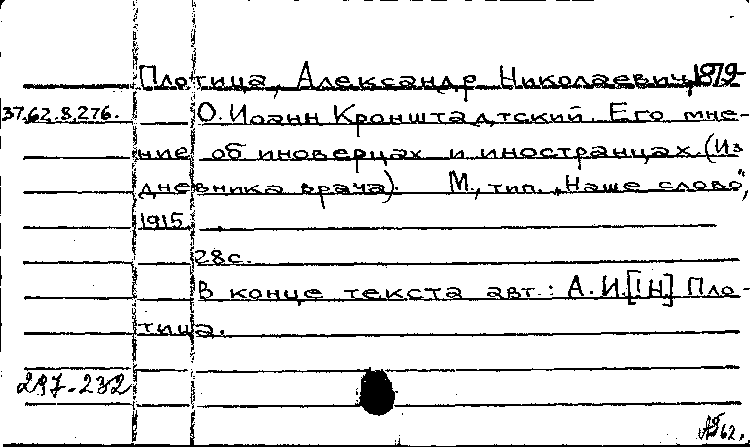 Плотица, Александр Николаевич, 1879-
37.62.8.276.
О. Иоанн Кронштадтский. Его мне-
ние об иноверцах и иностранцах. (Из
дневника врача). М., тип. „Наше слово",
1915.
28с.
В конце текста авт.: А.И.[!Н.] Пло-
тица.
62.